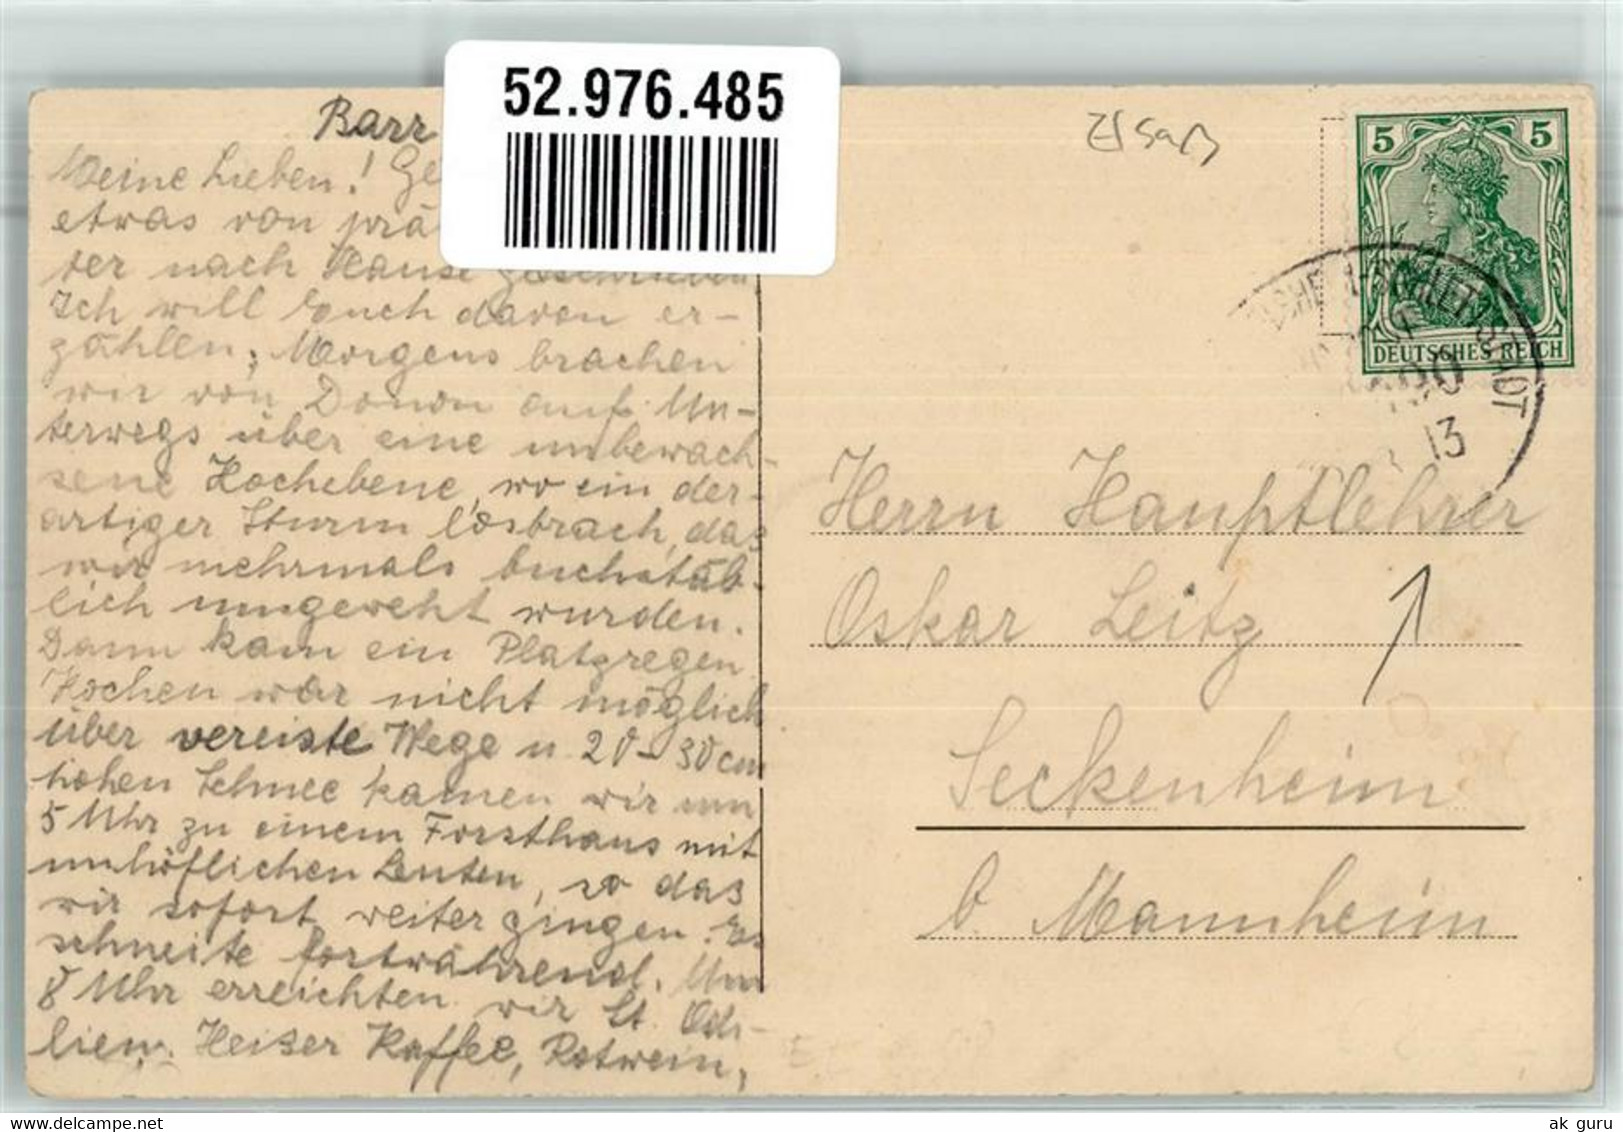 52.976.485
Barr
Elsaß
Meine Lieben! Ge
etwas von prä
ter nach Hause geschrieben
Ich will Euch davon er-
zählen. Morgens brachen
wir von Donon auf. Un-
terwegs über eine unbewach-
sene Hochebene, wo ein der-
artiger Sturm losbrach, das
wir mehrmals buchstäb-
lich umgeweht wurden.
Dann kam ein Platzregen
Kochen war nicht möglich
über vereiste Wege u. 20-30 cm
hohen Schnee kamen wir um
5 Uhr zu einem Forsthaus mit
unhöflichen Leuten, so das
wir sofort weiter gingen. Es
schneite fortwährend. Um
8 Uhr erreichten wir St. Odi-
lien. Heißer Kaffee, Rotwein,
5 5
DEUTSCHES REICH
SCHLETTSTADT
13
Herrn Hauptlehrer
Oskar Leitz
Seckenheim
b. Mannheim
ak guru